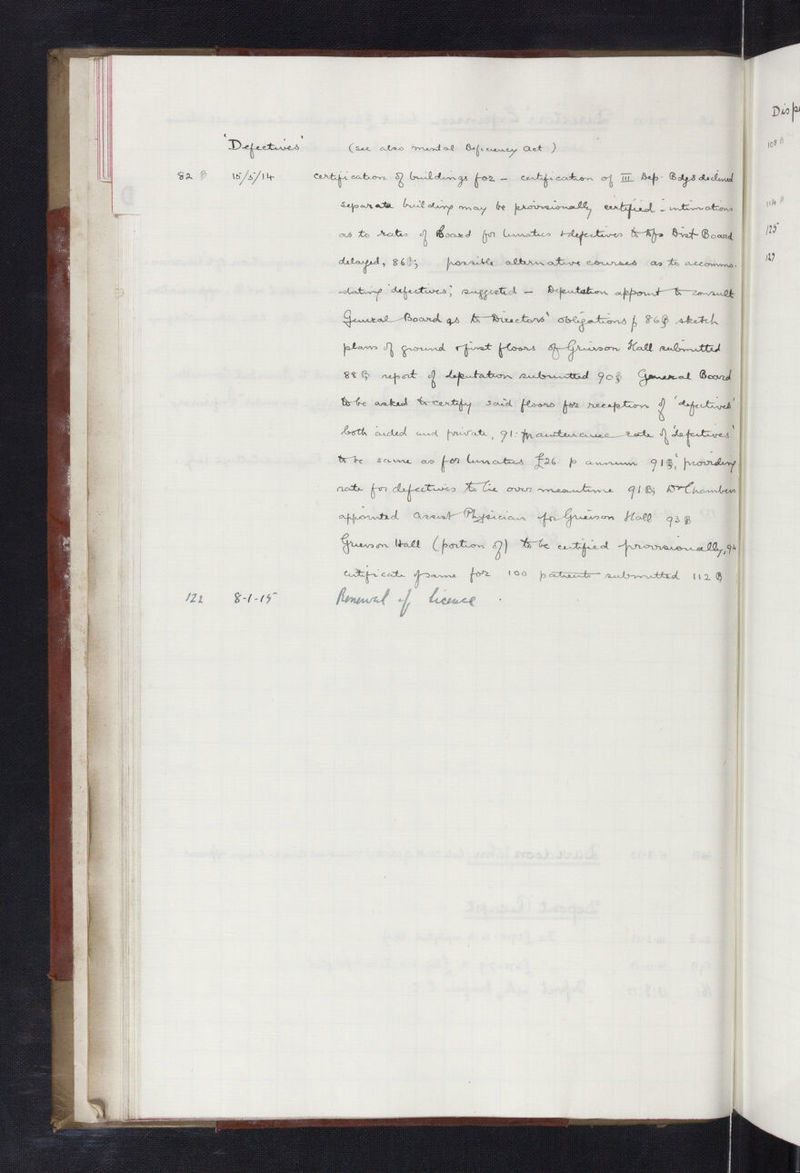 'Defectives' (see also mental Deficiency Act)
82 B 15/5/14 certification of buildings for – certification of III Dep. Bdgs declined
separate building may be provisionally certified – intimations
as to rates of Board for lunatics & defectives to Dist Board
delayed, 86B; possible alternative courses as to accommo-
-dating 'defectives', suggested – Deputation appoint to consult
General Board as to Directors' obligations 86B sketch
plans of ground & first floors of Grierson Hall submitted
88B report of deputation submitted 90B General Board
to be asked to certify said floors for reception of 'defectives'
both aided and private, 91: maintenance rate of 'defectives'
to be same as for lunatics £26 p annum 91B; providing
rate for defectives to lie over meantime 91B; Dr Chambers
appointed Assist Physician for Grierson Hall 93B
Grierson Hall (portion of) to be certified provisionally, 94
certificate of same for 100 patients submitted 112B
122 8-1-15 Renewal of licence.
Disp
108 B
114 B
125
127